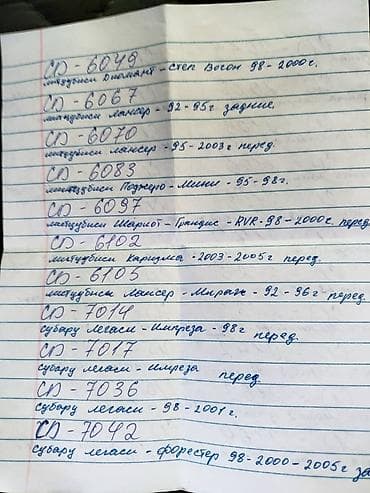 CD - 6049
митцубиси Диамант - Степ Вогон 98 - 2000 г.
CD - 6067
митцубиси лансер - 92 - 95 г задние.
CD - 6070
митцубиси лансер - 95 - 2003 г перед.
CD - 6083
митцубиси Поджеро - Мини - 95 - 98 г.
CD - 6097
митцубиси Шариот - Грандис - RVR - 98 - 2000 г. перед.
CD - 6102
митцубиси Каризма - 2003 - 2005 г перед.
CD - 6105
митцубиси Лансер - Мираж - 92 - 96 г перед.
CD - 7014
субару легаси - Импреза - 98 г перед.
CD - 7017
субару легаси - Импреза перед.
CD - 7036
субару легаси - 98 - 2001 г.
CD - 7042
субару легаси - форестер 98 - 2000 - 2005 г за